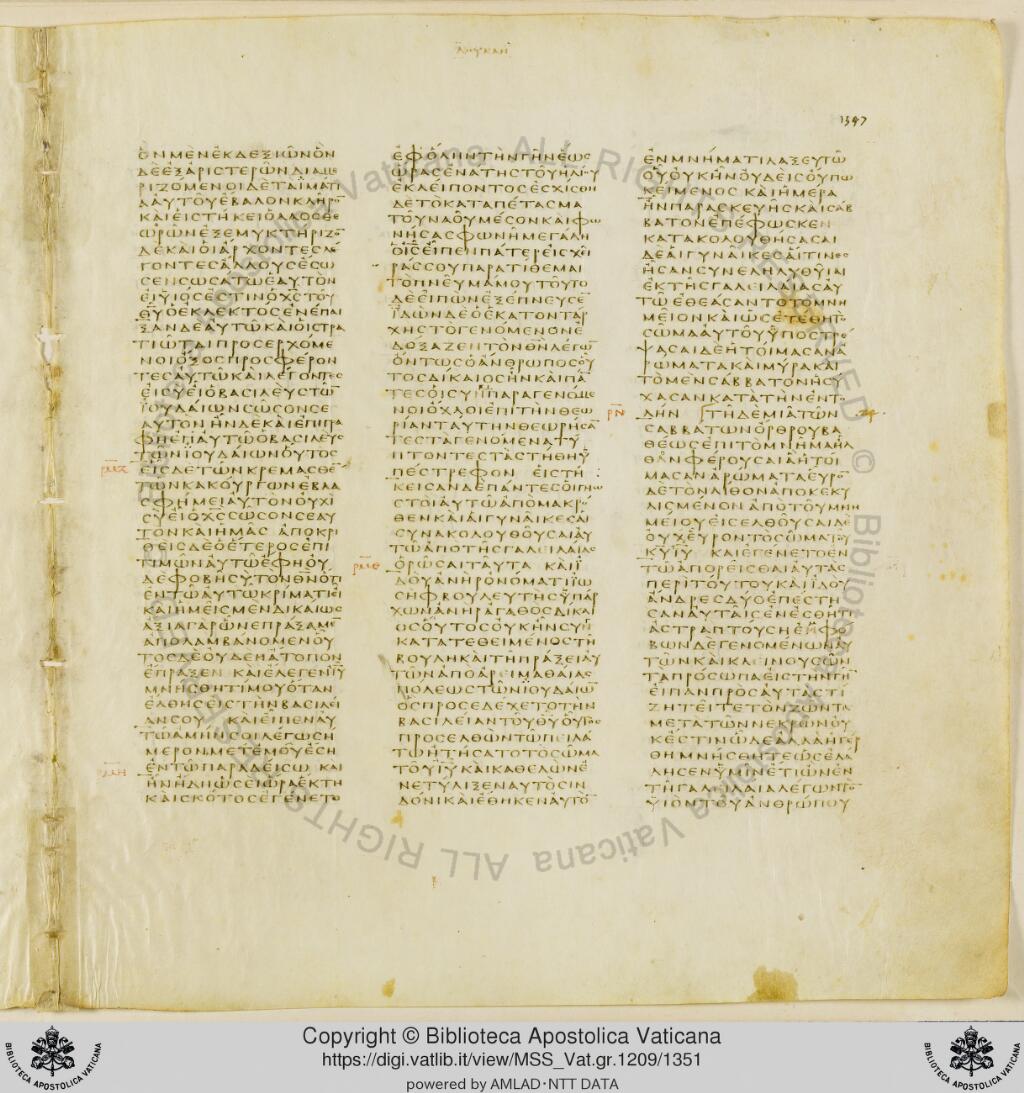 ΛΟΥΚΑΝ
1347
ΟΝΜΕΝΕΚΔΕΞΙΩΝΟΝ
ΔΕΕΞΑΡΙϹΤΕΡΩΝΔΙΑΜΕ
ΡΙΖΟΜΕΝΟΙΔΕΤΑΙΜΑΤΙ
ΑΑΥΤΟΥΕΒΑΛΟΝΚΛΗΡΟ̅
ΚΑΙΕΙϹΤΗΚΕΙΟΛΑΟϹΘΕ
ΩΡΩΝΕΞΕΜΥΚΤΗΡΙΖΟ̅
ΔΕΚΑΙΟΙΑΡΧΟΝΤΕϹΛΕ
ΓΟΝΤΕϹΑΛΛΟΥϹΕϹΩ
ϹΕΝϹΩϹΑΤΩΕΑΥΤΟΝ
ΕΙΥΙΟϹΕϹΤΙΝΟΧ̅Ϲ̅ΤΟΥ
Θ̅Υ̅ΟΕΚΛΕΚΤΟϹΕΝΕΠΑΙ
ΞΑΝΔΕΑΥΤΩΚΑΙΟΙϹΤΡΑ
ΤΙΩΤΑΙΠΡΟϹΕΡΧΟΜΕ
ΝΟΙΟΞΟϹΠΡΟϹΦΕΡΟΝ
ΤΕϹΑΥΤΩΚΑΙΛΕΓΟΝΤΕϹ
ΕΙϹΥΕΙΟΒΑϹΙΛΕΥϹΤΩ̅
ΙΟΥΔΑΙΩΝϹΩϹΟΝϹΕ
ΑΥΤΟΝΗΝΔΕΚΑΙΕΠΙΓΡΑ
ΦΗΕΠΑΥΤΩΟΒΑϹΙΛΕΥϹ
ΤΩΝΙΟΥΔΑΙΩΝΟΥΤΟϹ
ΡΜΖ ΕΙϹΔΕΤΩΝΚΡΕΜΑϹΘΕ̅
ΤΩΝΚΑΚΟΥΡΓΩΝΕΒΛΑ
ϹΦΗΜΕΙΑΥΤΟΝΟΥΧΙ
ϹΥΕΙΟΧ̅Ϲ̅ϹΩϹΟΝϹΕΑΥ
ΤΟΝΚΑΙΗΜΑϹ ΑΠΟΚΡΙ
ΘΕΙϹΔΕΟΕΤΕΡΟϹΕΠΙ
ΤΙΜΩΝΑΥΤΩΕΦΗΟΥ
ΔΕΦΟΒΗϹΥΤΟΝΘ̅Ν̅ΟΤΙ
ΕΝΤΩΑΥΤΩΚΡΙΜΑΤΙΕΙ
ΚΑΙΗΜΕΙϹΜΕΝΔΙΚΑΙΩϹ
ΑΞΙΑΓΑΡΩΝΕΠΡΑΞΑΜΕ̅
ΑΠΟΛΑΜΒΑΝΟΜΕΝΟΥ
ΤΟϹΔΕΟΥΔΕΝΑΤΟΠΟΝ
ΕΠΡΑΞΕΝ ΚΑΙΕΛΕΓΕΝΙ̅Υ̅
ΜΝΗϹΘΗΤΙΜΟΥΟΤΑΝ
ΕΛΘΗϹΕΙϹΤΗΝΒΑϹΙΛΕΙ
ΑΝϹΟΥ ΚΑΙΕΙΠΕΝΑΥ
ΤΩΑΜΗΝϹΟΙΛΕΓΩϹΗ
ΜΕΡΟΝΜΕΤΕΜΟΥΕϹΗ
ΕΝΤΩΠΑΡΑΔΕΙϹΩ ΚΑΙ
ΡΜΗ ΗΝΗΔΗΩϹΕΙΩΡΑΕΚΤΗ
ΚΑΙϹΚΟΤΟϹΕΓΕΝΕΤΟ
ΕΦΟΛΗΝΤΗΝΓΗΝΕΩϹ
ΩΡΑϹΕΝΑΤΗϹΤΟΥΗΛΙΟΥ
ΕΚΛΕΙΠΟΝΤΟϹΕϹΧΙϹΘΗ
ΔΕΤΟΚΑΤΑΠΕΤΑϹΜΑ
ΤΟΥΝΑΟΥΜΕϹΟΝΚΑΙΦΩ
ΝΗϹΑϹΦΩΝΗΜΕΓΑΛΗ
ΟΙ̅Ϲ̅ΕΙΠΕΝΠΑΤΕΡΕΙϹΧΕΙ
ΡΑϹϹΟΥΠΑΡΑΤΙΘΕΜΑΙ
ΤΟΠΝΕΥΜΑΜΟΥΤΟΥΤΟ
ΔΕΕΙΠΩΝΕΞΕΠΝΕΥϹΕ̅
ΙΔΩΝΔΕΟΕΚΑΤΟΝΤΑΡ
ΧΗϹΤΟΓΕΝΟΜΕΝΟΝΕ
ΔΟΞΑΖΕΝΤΟΝΘ̅Ν̅ΛΕΓΩ̅
ΟΝΤΩϹΟΑΝΘΡΩΠΟϹΟΥ
ΤΟϹΔΙΚΑΙΟϹΗΝΚΑΙΠΑ̅
ΤΕϹΟΙϹΥΝΠΑΡΑΓΕΝΟΜΕ
ΝΟΙΟΧΛΟΙΕΠΙΤΗΝΘΕΩ
ΡΙΑΝΤΑΥΤΗΝΘΕΩΡΗϹΑ̅
ΤΕϹΤΑΓΕΝΟΜΕΝΑΤΥ
ΠΤΟΝΤΕϹΤΑϹΤΗΘΗΥ
ΠΕϹΤΡΕΦΟΝ ΕΙϹΤΗ
ΚΕΙϹΑΝΔΕΠΑΝΤΕϹΟΙΓΝΩ
ϹΤΟΙΑΥΤΩΑΠΟΜΑΚΡΟ
ΘΕΝΚΑΙΑΙΓΥΝΑΙΚΕϹΑΙ
ϹΥΝΑΚΟΛΟΥΘΟΥϹΑΙΑΥ
ΤΩΑΠΟΤΗϹΓΑΛΕΙΛΑΙΑϹ
ΡΜΘ ΟΡΩϹΑΙΤΑΥΤΑ ΚΑΙΙ
ΔΟΥΑΝΗΡΟΝΟΜΑΤΙΙΩ
ϹΗΦΒΟΥΛΕΥΤΗϹΥΠΑΡ
ΧΩΝΑΝΗΡΑΓΑΘΟϹΔΙΚΑΙ
ΟϹΟΥΤΟϹΟΥΚΗΝϹΥΝ
ΚΑΤΑΤΕΘΕΙΜΕΝΟϹΤΗ
ΒΟΥΛΗΚΑΙΤΗΠΡΑΞΕΙΑΥ
ΤΩΝΑΠΟΑΡΕΙΜΑΘΑΙΑϹ
ΠΟΛΕΩϹΤΩΝΙΟΥΔΑΙΩ̅
ΟϹΠΡΟϹΕΔΕΧΕΤΟΤΗΝ
ΒΑϹΙΛΕΙΑΝΤΟΥΘ̅Υ̅ΟΥΤΟϹ
ΠΡΟϹΕΛΘΩΝΤΩΠΕΙΛΑ
ΤΩΗΤΗϹΑΤΟΤΟϹΩΜΑ
ΤΟΥΙ̅Υ̅ΚΑΙΚΑΘΕΛΩΝΕ
ΝΕΤΥΛΙΞΕΝΑΥΤΟϹΙΝ
ΔΟΝΙΚΑΙΕΘΗΚΕΝΑΥΤΟ̅
ΕΝΜΝΗΜΑΤΙΛΑΞΕΥΤΩ
ΟΥΟΥΚΗΝΟΥΔΕΙϹΟΥΠΩ
ΚΕΙΜΕΝΟϹ ΚΑΙΗΜΕΡΑ
ΗΝΠΑΡΑϹΚΕΥΗϹΚΑΙϹΑΒ
ΒΑΤΟΝΕΠΕΦΩϹΚΕΝ
ΚΑΤΑΚΟΛΟΥΘΗϹΑϹΑΙ
ΔΕΑΙΓΥΝΑΙΚΕϹΑΙΤΙΝΕϹ
ΗϹΑΝϹΥΝΕΛΗΛΥΘΥΙΑΙ
ΕΚΤΗϹΓΑΛΕΙΛΑΙΑϹΑΥ
ΤΩΕΘΕΑϹΑΝΤΟΤΟΜΝΗ
ΜΕΙΟΝΚΑΙΩϹΕΤΕΘΗΤΟ
ϹΩΜΑΑΥΤΟΥΥΠΟϹΤΡΕ
ΨΑϹΑΙΔΕΗΤΟΙΜΑϹΑΝΑ
ΡΩΜΑΤΑΚΑΙΜΥΡΑΚΑΙ
ΤΟΜΕΝϹΑΒΒΑΤΟΝΗϹΥ
ΧΑϹΑΝΚΑΤΑΤΗΝΕΝΤΟ
ΡΝ ΛΗΝ ΤΗΔΕΜΙΑΤΩΝ
ϹΑΒΒΑΤΩΝΟΡΘΡΟΥΒΑ
ΘΕΩϹΕΠΙΤΟΜΝΗΜΑΗΛ
ΘΑΝΦΕΡΟΥϹΑΙΑΗΤΟΙ
ΜΑϹΑΝΑΡΩΜΑΤΑΕΥΡΟ̅
ΔΕΤΟΝΛΙΘΟΝΑΠΟΚΕΚΥ
ΛΙϹΜΕΝΟΝΑΠΟΤΟΥΜΝΗ
ΜΕΙΟΥΕΙϹΕΛΘΟΥϹΑΙΔΕ
ΟΥΧΕΥΡΟΝΤΟϹΩΜΑΤΟΥ
Κ̅Υ̅Ι̅Υ̅ ΚΑΙΕΓΕΝΕΤΟΕΝ
ΤΩΑΠΟΡΕΙϹΘΑΙΑΥΤΑϹ
ΠΕΡΙΤΟΥΤΟΥΚΑΙΙΔΟΥ
ΑΝΔΡΕϹΔΥΟΕΠΕϹΤΗ
ϹΑΝΑΥΤΑΙϹΕΝΕϹΘΗΤΙ
ΑϹΤΡΑΠΤΟΥϹΗΕΜΦΟ
ΒΩΝΔΕΓΕΝΟΜΕΝΩΝΑΥ
ΤΩΝΚΑΙΚΛΕΙΝΟΥϹΩΝ
ΤΑΠΡΟϹΩΠΑΕΙϹΤΗΝΓΗ̅
ΕΙΠΑΝΠΡΟϹΑΥΤΑϹΤΙ
ΖΗΤΕΙΤΕΤΟΝΖΩΝΤΑ
ΜΕΤΑΤΩΝΝΕΚΡΩΝΟΥ
ΚΕϹΤΙΝΩΔΕΑΛΛΑΗΓΕΡ
ΘΗΜΝΗϹΘΗΤΕΩϹΕΛΑ
ΛΗϹΕΝΥΜΙΝΕΤΙΩΝΕΝ
ΤΗΓΑΛΕΙΛΑΙΑΛΕΓΩΝΤΟ̅
ΥΙΟΝΤΟΥΑΝΘΡΩΠΟΥ
Copyright © Biblioteca Apostolica Vaticana
https://digi.vatlib.it/view/MSS_Vat.gr.1209/1351
powered by AMLAD・NTT DATA
BIBLIOTECA APOSTOLICA VATICANA
BIBLIOTECA APOSTOLICA VATICANA